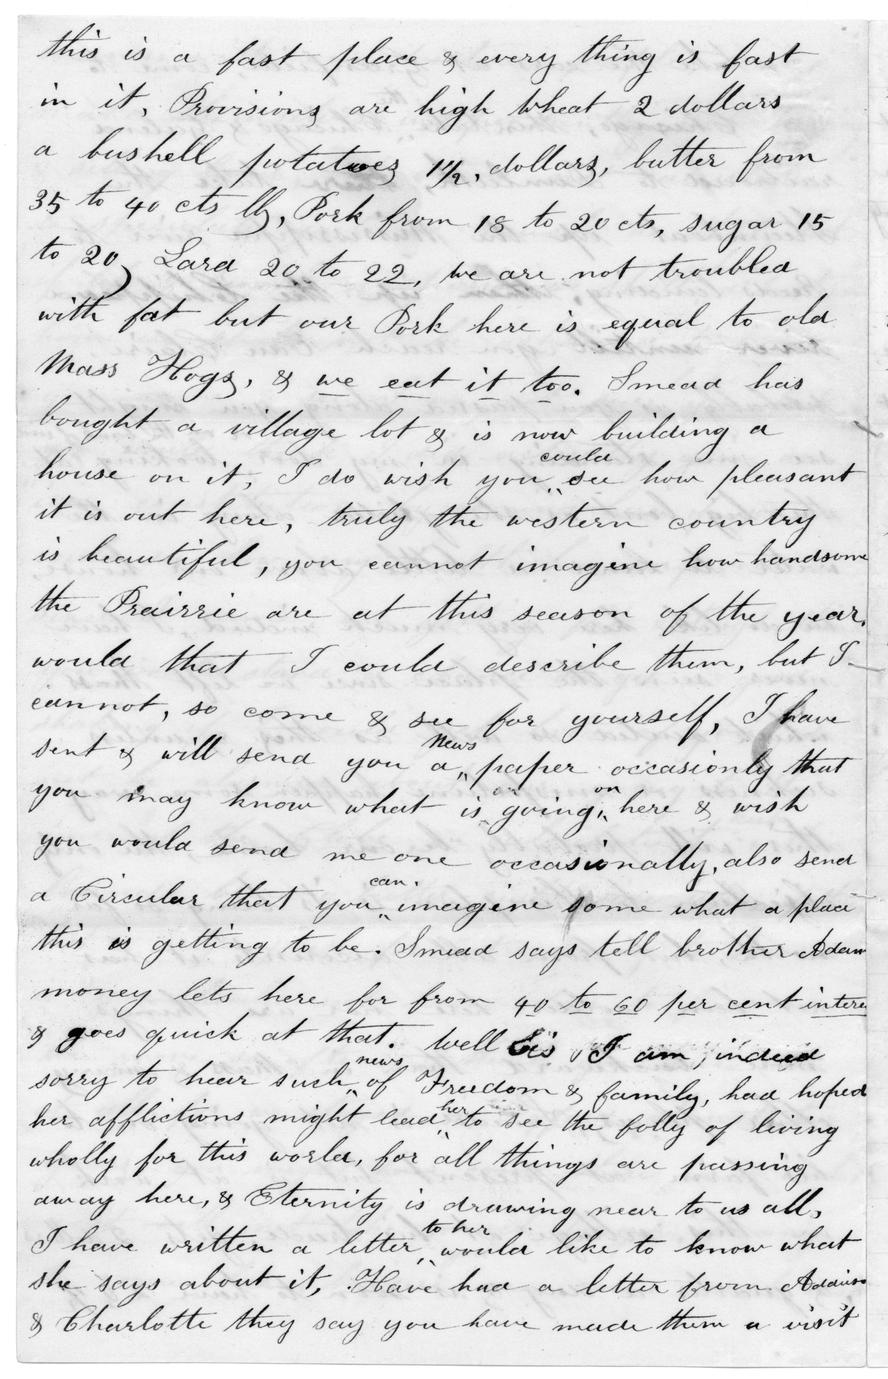 this is a fast place & every thing is fast
in it, Provisions are high Wheat 2 dollars
a bushell potatoes 1 1/2, dollars, butter from
35 to 40 cts lb, Pork from 18 to 20 cts, sugar 15
to 20, Lard 20 to 22, we are not troubled
with fat but our Pork here is equal to old
Mass Hogs, & we eat it too. Smead has
bought a village lot & is now building a
house on it, I do wish you could see how pleasant
it is out here, truly the western country
is beautiful, you cannot imagine how handsome
the Prairrie are at this season of the year,
would that I could describe them, but I
cannot, so come & see for yourself, I have
sent & will send you a News paper occasionly that
you may know what is going on here & wish
you would send me one occasionally, also send
a Circular that you can imagine some what a place
this is getting to be. Smead says tell brother Adam
money lets here for from 40 to 60 per cent intere
& goes quick at that. Well Sis I am indeed
sorry to hear such news of Freedom & family, had hoped
her afflictions might lead her to see the folly of living
wholly for this world, for all things are passing
away here, & Eternity is drawing near to us all,
I have written a letter to her would like to know what
she says about it, Have had a letter from Addison
& Charlotte they say you have made them a visit